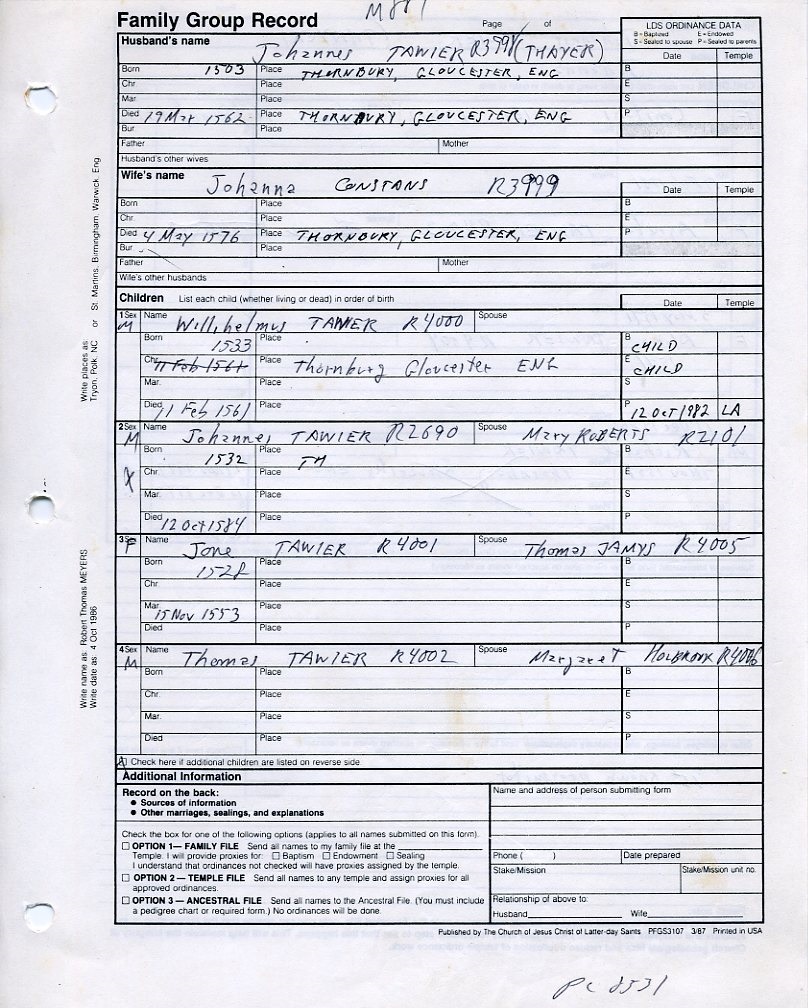 M881
Family Group Record
Page of
LDS ORDINANCE DATA
B = Baptized E = Endowed
S = Sealed to spouse P = Sealed to parents
Husband's name
Johannes TAWIER R3998 (THAYER)
Date Temple
Born 1503 Place THORNBURY, GLOUCESTER, ENG B
Chr. Place E
Mar. Place S
Died 19 Mar 1562 Place THORNBURY, GLOUCESTER, ENG P
Bur. Place
Father Mother
Husband's other wives
Wife's name
Johanna CONSTANS R3999
Date Temple
Born Place B
Chr. Place E
Died 4 May 1576 Place THORNBURY, GLOUCESTER, ENG P
Bur. Place
Father Mother
Wife's other husbands
Children List each child (whether living or dead) in order of birth
Date Temple
1 Sex M Name Willhelmus TAWIER R4000 Spouse
Born 1533 Place B CHILD
Chr. 11 Feb 1561 Place Thornburg Gloucester ENG E CHILD
Mar. Place S
Died 11 Feb 1561 Place P 12 OCT 1982 LA
2 Sex M Name Johannes TAWIER R2690 Spouse Mary ROBERTS R2101
Born 1532 Place TH B
X Chr. Place E
Mar. Place S
Died 12 Oct 1584 Place P
3 Sex F Name Jone TAWIER R4001 Spouse Thomas JAMYS R4005
Born 1528 Place B
Chr. Place E
Mar. 15 Nov 1553 Place S
Died Place P
4 Sex M Name Thomas TAWIER R4002 Spouse Margaret HOLBROOK R4006
Born Place B
Chr. Place E
Mar. Place S
Died Place P
X Check here if additional children are listed on reverse side.
Additional Information
Record on the back:
● Sources of information
● Other marriages, sealings, and explanations
Check the box for one of the following options (applies to all names submitted on this form).
☐ OPTION 1— FAMILY FILE Send all names to my family file at the
Temple. I will provide proxies for: ☐ Baptism ☐ Endowment ☐ Sealing
I understand that ordinances not checked will have proxies assigned by the temple.
☐ OPTION 2 — TEMPLE FILE Send all names to any temple and assign proxies for all
approved ordinances.
☐ OPTION 3 — ANCESTRAL FILE Send all names to the Ancestral File. (You must include
a pedigree chart or required form.) No ordinances will be done.
Name and address of person submitting form
Phone ( ) Date prepared
Stake/Mission Stake/Mission unit no.
Relationship of above to:
Husband Wife
Published by The Church of Jesus Christ of Latter-day Saints PFGS3107 3/87 Printed in USA
PC 8531
Write places as: Tryon, Polk, NC or St. Martins, Birmingham, Warwick, Eng.
Write name as: Robert Thomas MEYERS
Write date as: 4 Oct 1986